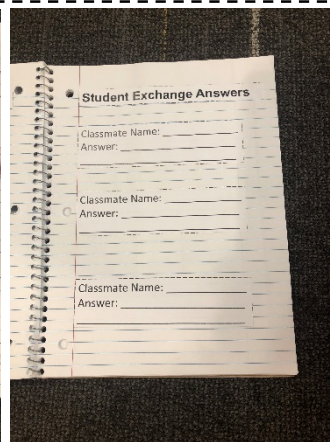 Student Exchange Answers
Classmate Name: ____________
Answer: ____________
____________
Classmate Name: ____________
Answer: ____________
____________
Classmate Name: ____________
Answer: ____________
____________